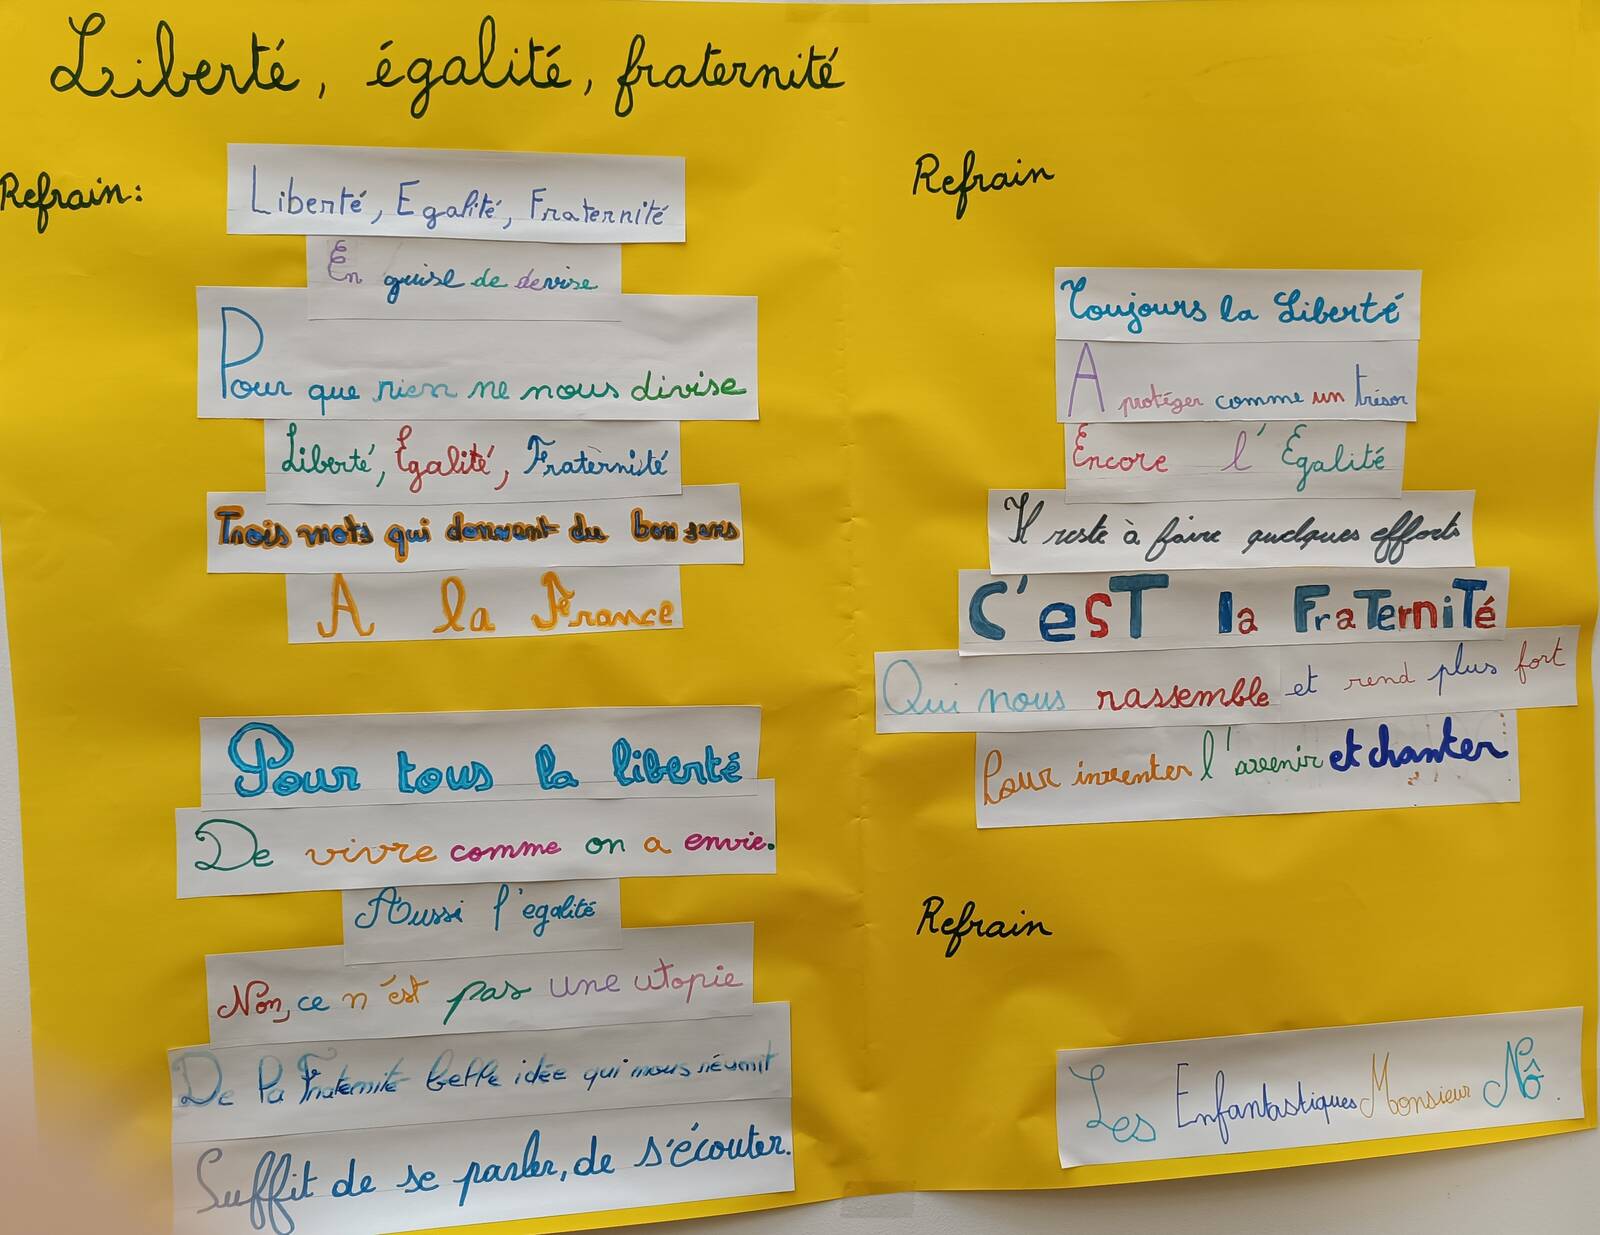 Liberté, égalité, fraternité
Refrain:
Liberté, Egalité, Fraternité
En guise de devise
Pour que rien ne nous divise
Liberté, Egalité, Fraternité
Trois mots qui donnent du bon sens
A la France
Pour tous la liberté
De vivre comme on a envie.
Aussi l'égalité
Non, ce n'est pas une utopie
De la Fraternité belle idée qui nous réunit
Suffit de se parler, de s'écouter.
Refrain
Toujours la Liberté
A protéger comme un trésor
Encore l'Egalité
Il reste à faire quelques efforts
C'esT la FraTerniTé
Qui nous rassemble et rend plus fort
Pour inventer l'avenir et chanter
Refrain
Les Enfantastiques Monsieur Nô.